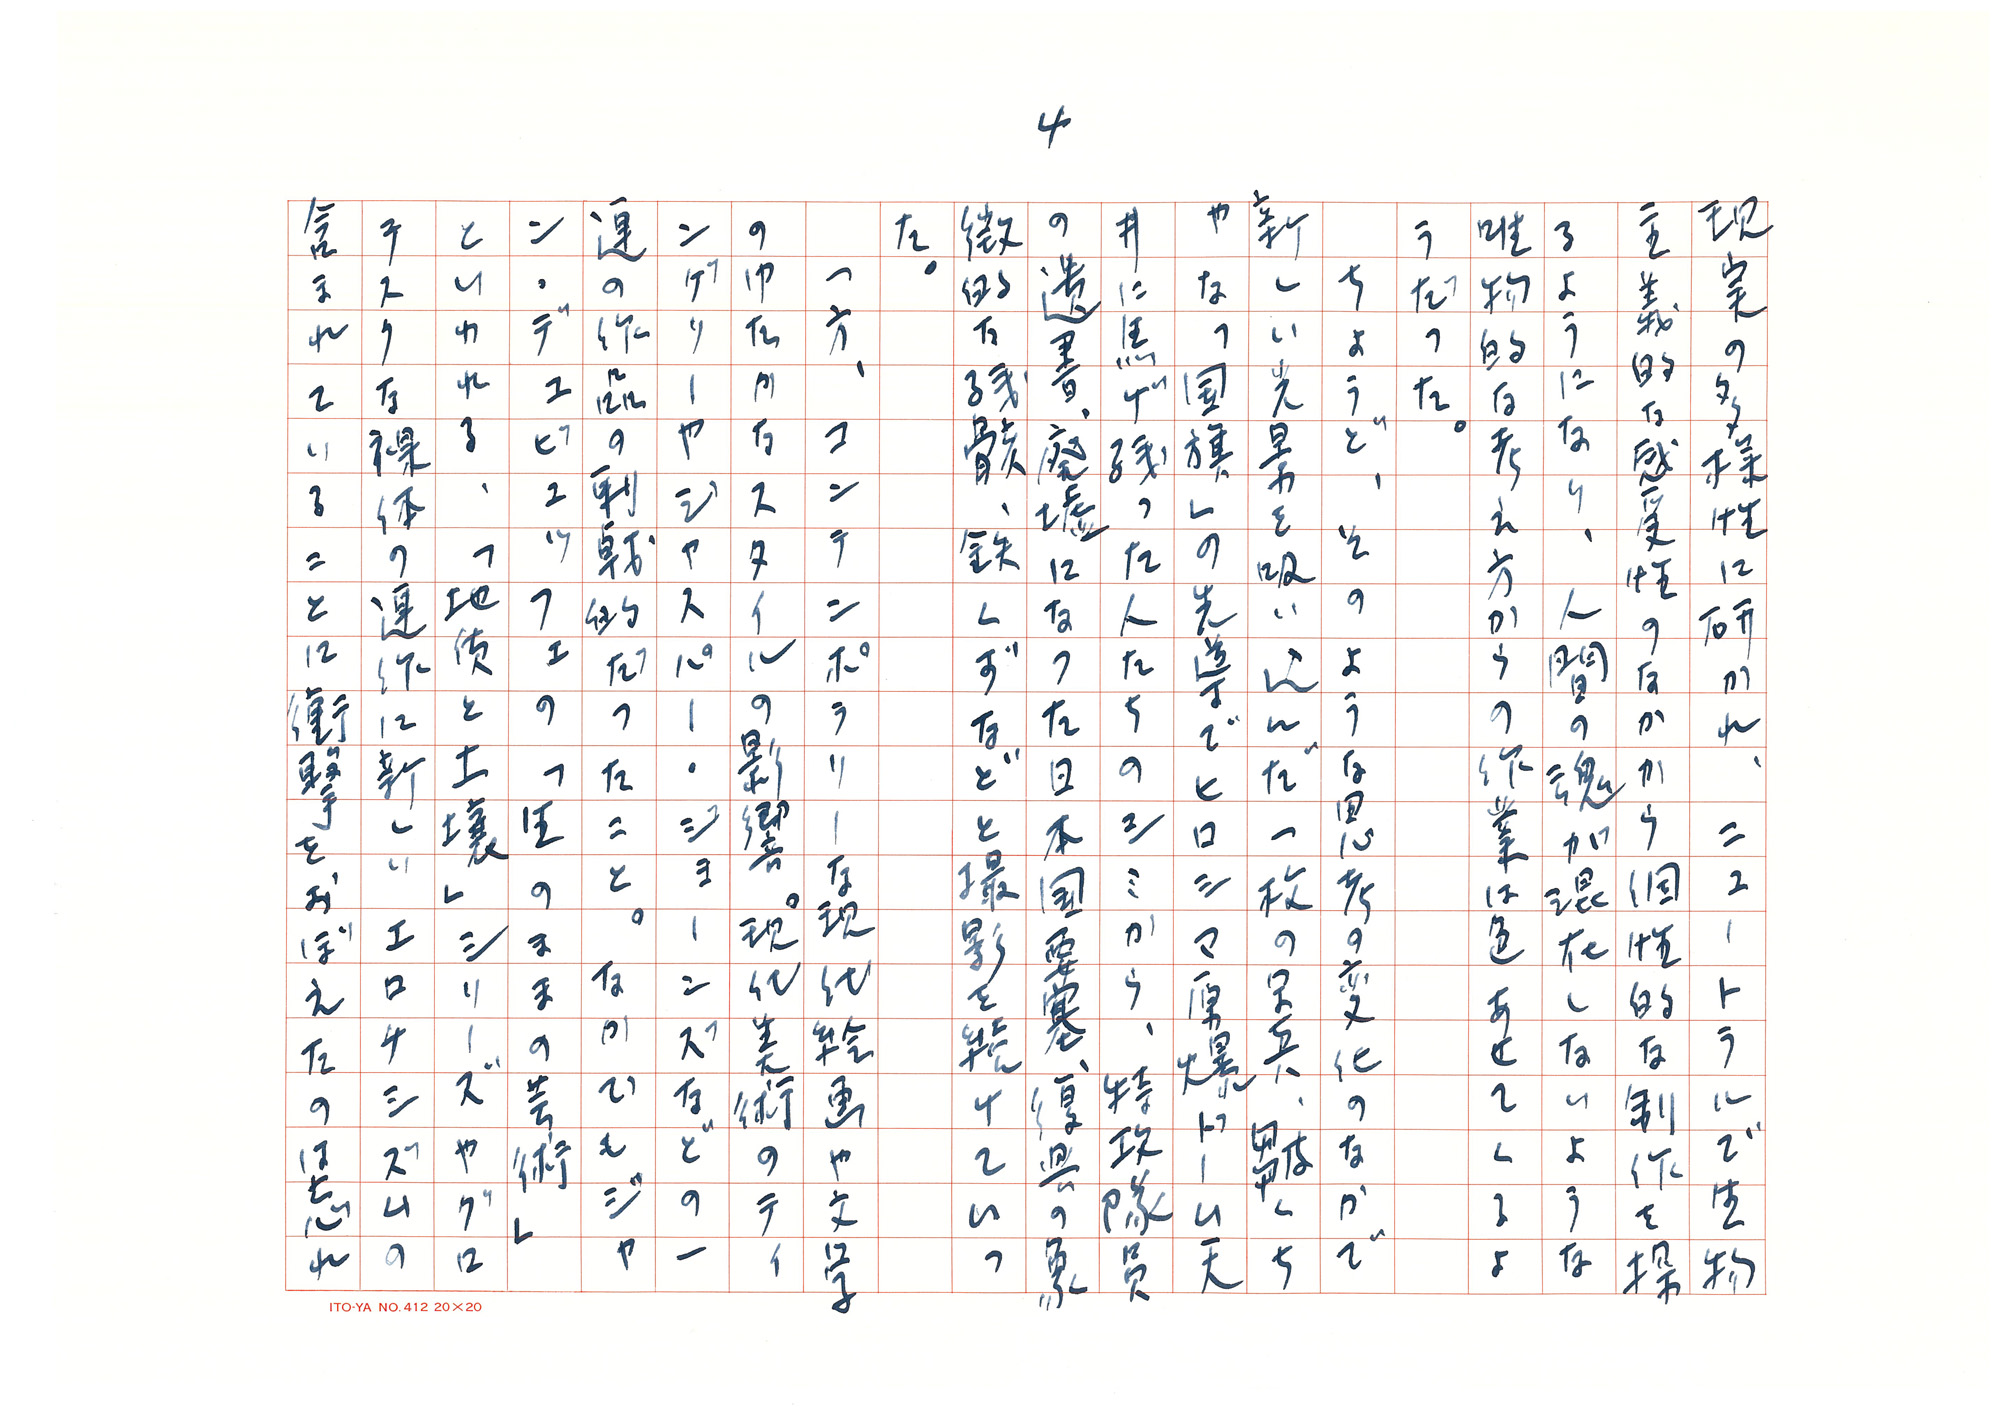 4
現実の多様性に研かれ、ニュートラルで生物
主義的な感受性のなかから個性的な制作を操
るようになり、人間の魂が混在しないような
唯物的な考え方からの作業は色あせてくるよ
うだった。
ちょうど、そのような思考の変化のなかで
新しい光景を吸い込んだ一枚の星条旗、
やなって国旗」の先導でヒロシマ原爆ドーム天
井に焦げ残った人たちのシミから、特攻隊員
の遺書、廃墟になった日本国要塞、復興の象
徴的な残骸、鉄くずなどと撮影を続けていっ
た。
一方、コンテンポラリーな現代絵画や文学
のゆたかなスタイルの影響。現代美術のティ
ンゲリーやジャスパー・ジョーンズなどの一
連の作品の刺戟的だったこと。なかでもジャ
ン・デュビュッフェの「生のままの芸術」
といわれる、「地質と土壌」シリーズやグロ
テスクな裸体の連作に新しいエロチシズムの
含まれていることに衝撃をおぼえたのは忘れ
ITO-YA NO.412 20×20